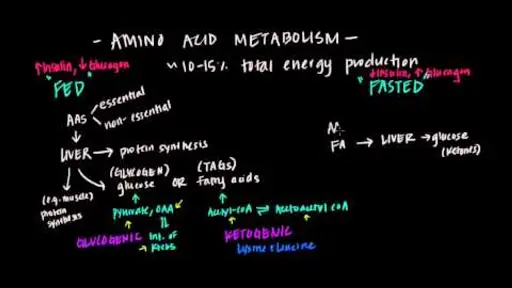 - AMINO ACID METABOLISM -
↑Insulin, ↓Glucagon
~ 10-15% total energy production
"FED"
↓Insulin, ↑Glucagon
"FASTED"
AAs
essential
non-essential
LIVER → protein synthesis
FA → LIVER → glucose
(ketones)
(e.g. muscle)
protein
synthesis
(GLYCOGEN)
(TAGs)
glucose OR Fatty acids
Pyruvate, OAA
Acetyl-CoA ⇌ Acetoacetyl CoA
GLUCOGENIC
Int. of
Krebs
KETOGENIC
Lysine + Leucine